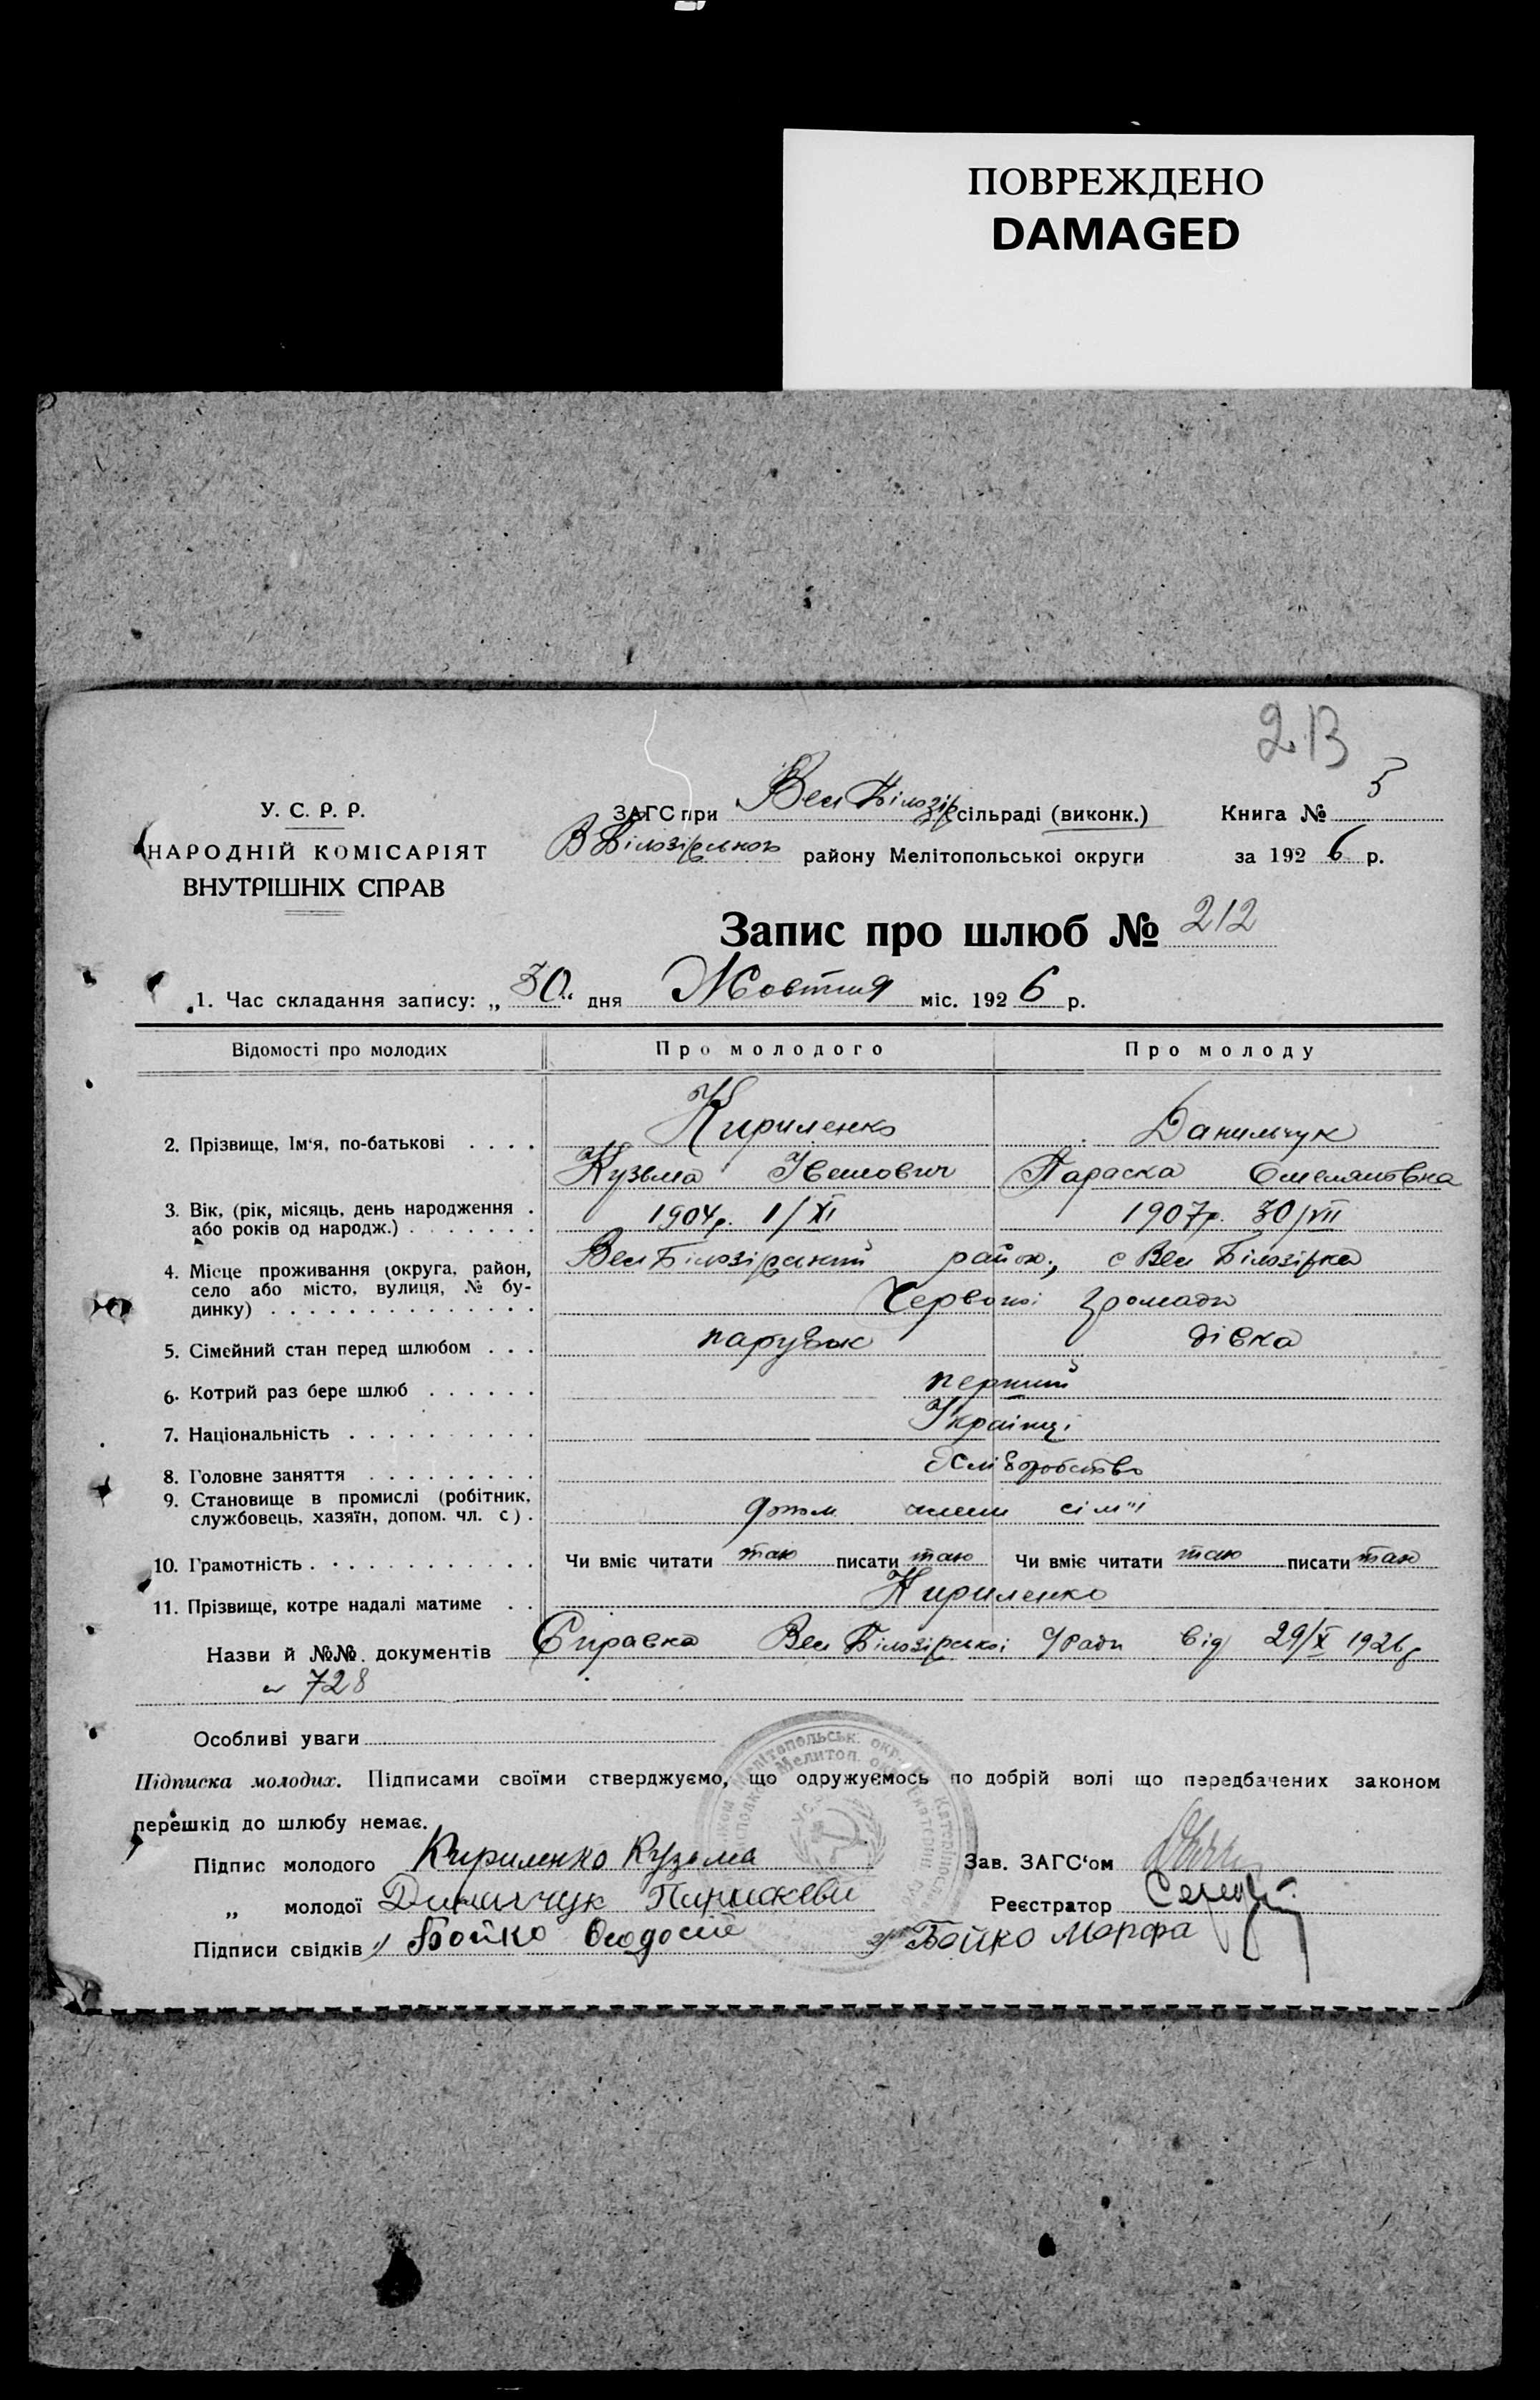 ПОВРЕЖДЕНО
DAMAGED
213
У. С. Р. Р.
НАРОДНІЙ КОМІСАРІЯТ
ВНУТРІШНІХ СПРАВ
ЗАГС при Вел Білозір сільраді (виконк.)
В Білозірського району Мелітопольської округи
Книга № 5
за 1926 р.
Запис про шлюб № 212
1. Час складання запису: „30“ дня Жовтня міс. 1926 р.
Відомості про молодих Про молодого Про молоду
2. Прізвище, Ім‘я, по-батькові . . . . Кириленко Данильчук
Кузьма Івангович Параска Омеляновна
3. Вік, (рік, місяць, день народження . 1904р. 1/XI 1907р. 30/VII
або років од народж.) . . . . . . .
4. Місце проживання (округа, район, Вел Білозірський район, с Вел Білозірка
село або місто, вулиця, № бу-
динку) . . . . . . . . . . . . . . Червоної громади
5. Сімейний стан перед шлюбом . . . парубок дівка
6. Котрий раз бере шлюб . . . . . . перший
7. Національність . . . . . . . . . . Українці
8. Головне заняття . . . . . . . . . Хліборобство
9. Становище в промислі (робітник,
службовець, хазяїн, допом. чл. с) . допом. члени сім"ї
10. Грамотність . . . . . . . . . . . . Чи вміє читати так писати так Чи вміє читати так писати так
11. Прізвище, котре надалі матиме . . Кириленко
Назви й №№ документів Справка Вел Білозірської С/Ради від 29/X 1926р
№ 728
Особливі уваги
Підписка молодих. Підписами своїми стверджуємо, що одружуємось по добрій волі що передбачених законом
перешкід до шлюбу немає.
Підпис молодого Кириленко Кузьма Зав. ЗАГС‘ом
„ молодої Данильчук Параскеви Реєстратор
Підписи свідків 1/ Бойко Феодосие 2/ Бойко Марфа